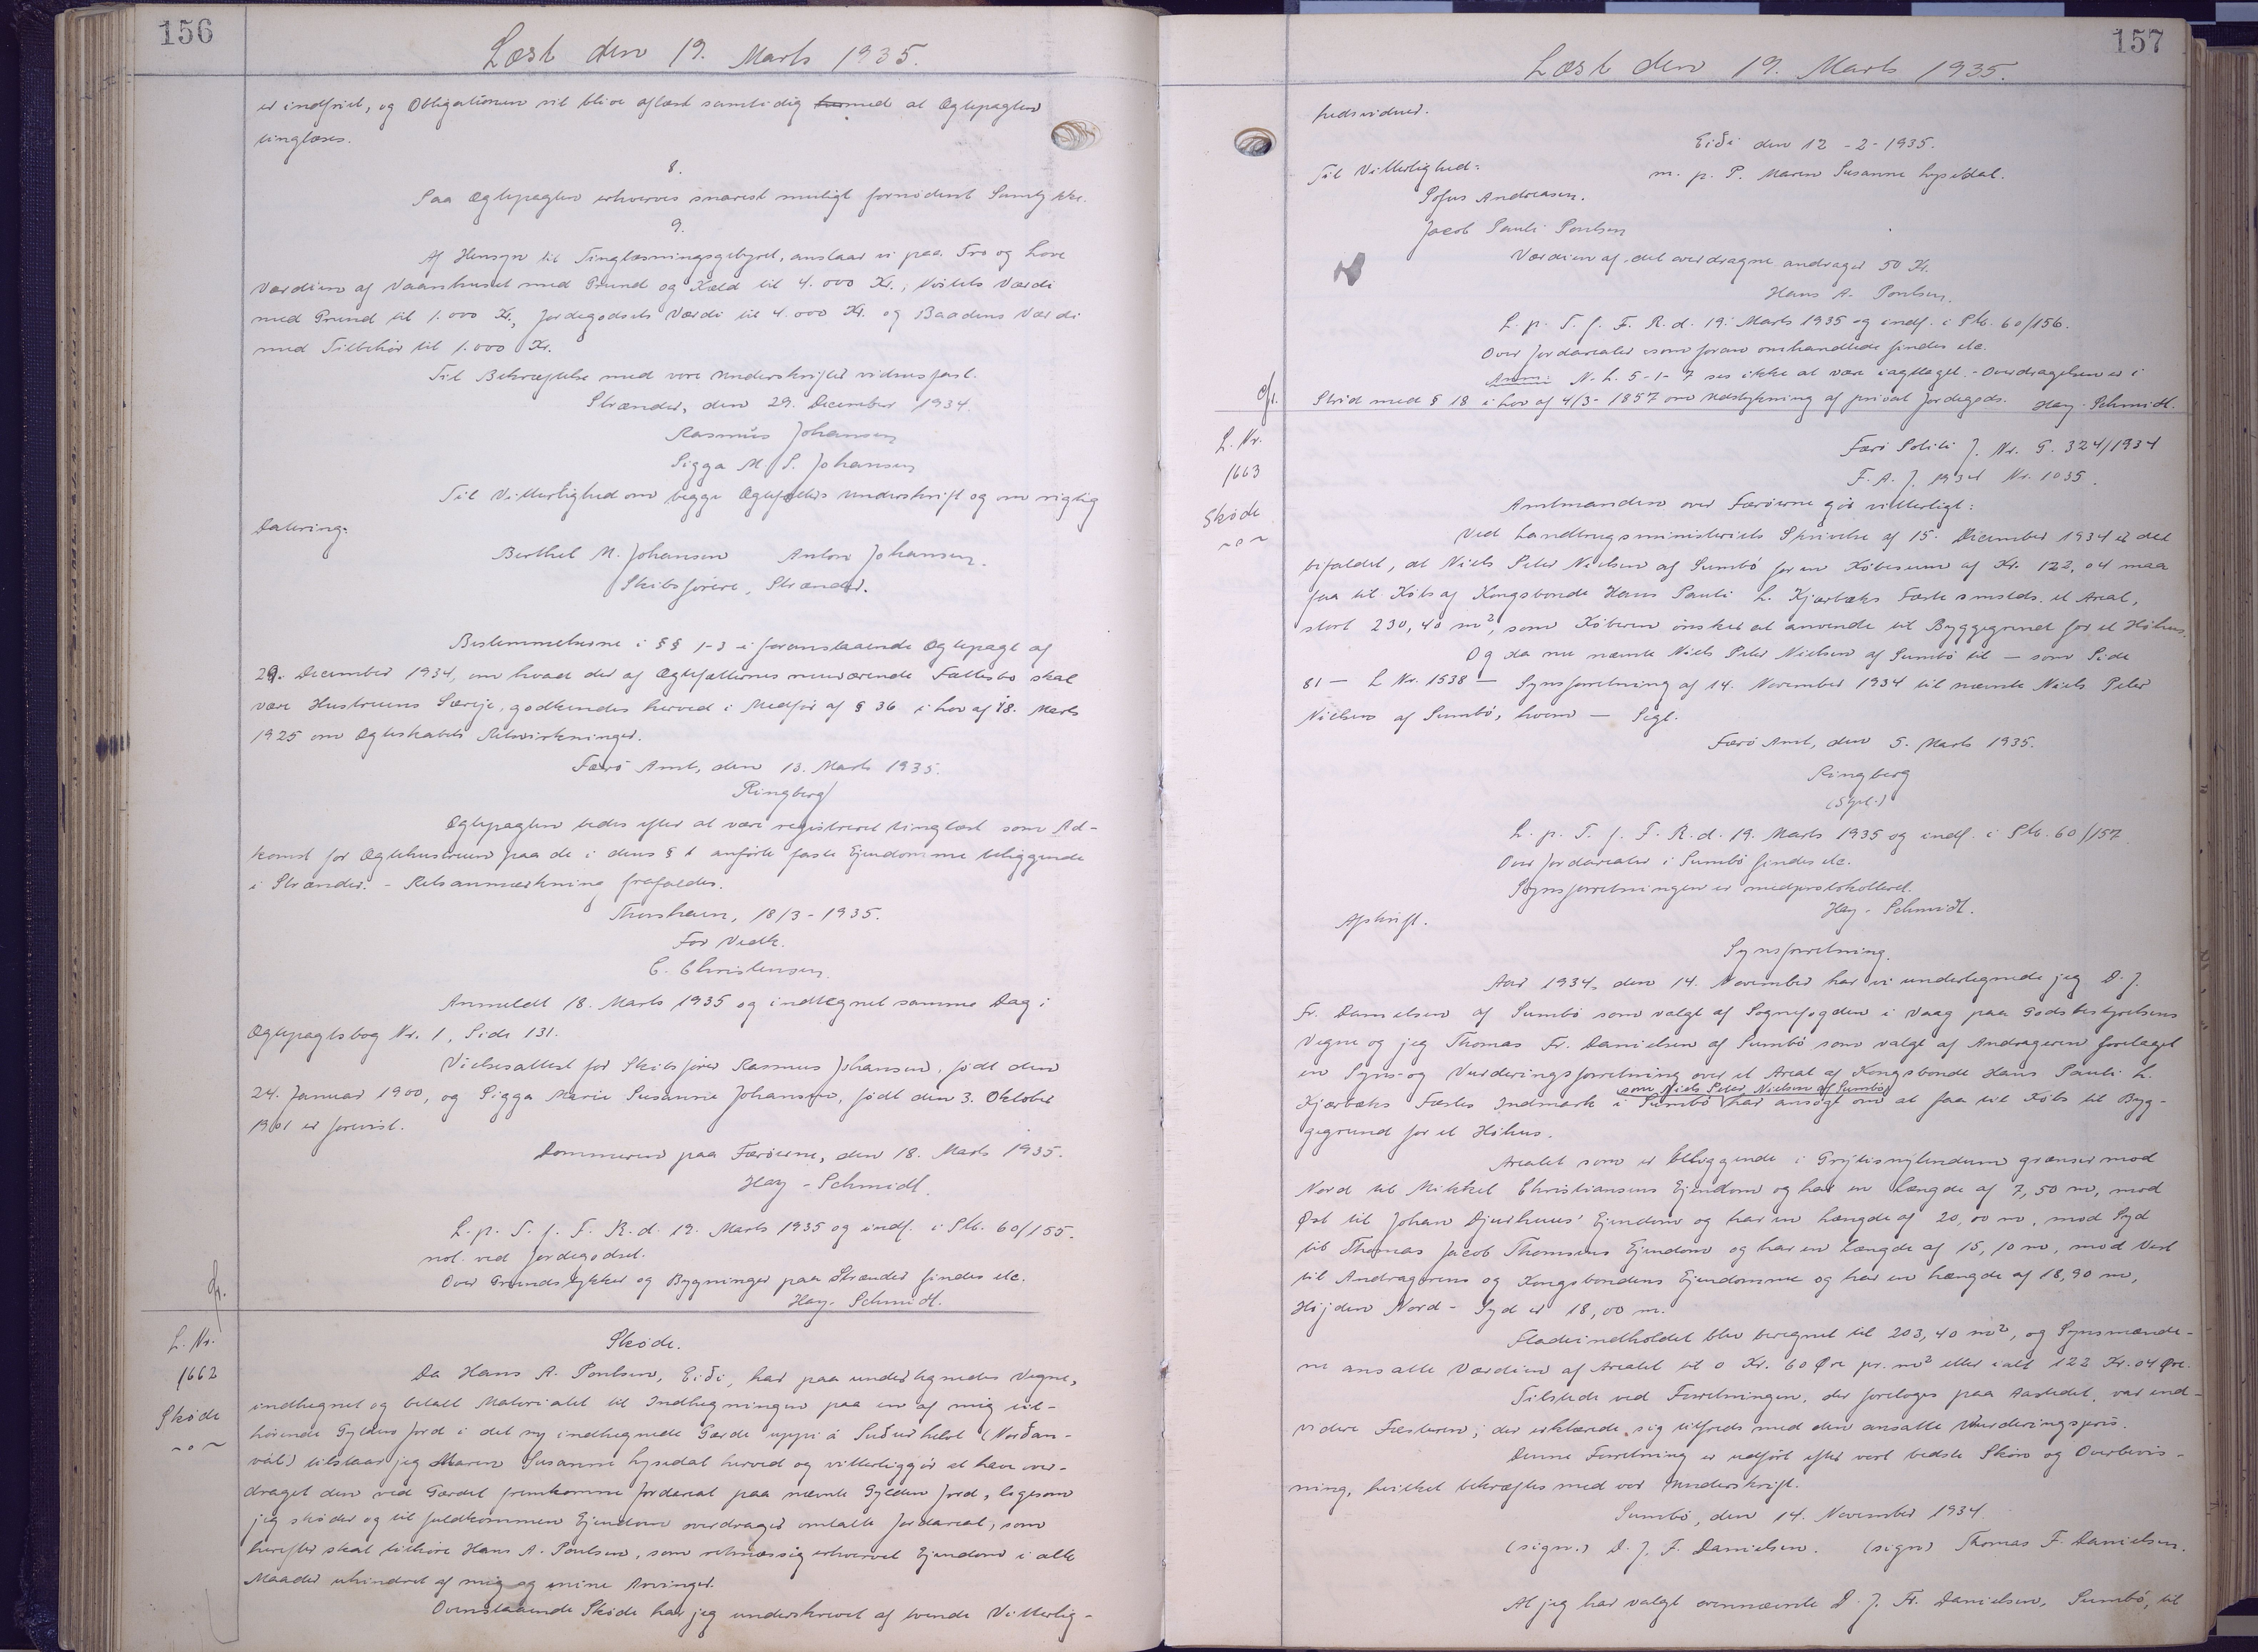 156
Læst den 19. Marts 1935.
er indfriet, og Obligationen vil blive aflæst samtidig med at Ægtepagten
tinglæses.
8.
Paa Ægtepagten erhverves snarest muligt fornødent Samtykke.
9.
Af Hensyn til Tinglæsningsgebyret, anslaar vi paa Tro og Love
Værdien af Vaaanhuset med Grund og Kæld til 4.000 Kr., Værdi
med Grund til 1.000 Kr., Jordegodsets Værdi til 4.000 Kr. og Baadens Værdi
med Tilbehør til 1.000 Kr.
Til Bekræftelse med vore Underskrifter vidnesfast.
Strænder, den 29. December 1934.
Rasmus Johansen
Sigga M. S. Johansen
Til Vitterlighed om begge Ægtefællers Underskrift og om rigtig
Datering:
Berthel M. Johansen Anton Johansen.
Skibsførere, Strænder.
Bestemmelserne i §§ 1-3 i foranstaaende Ægtepagt af
29. December 1934, om hvad der af Ægtefællernes nuværende Fællesbo skal
være Hustruens Særeje, godkendes herved i Medfør af § 36 i Lov af 18. Marts
1925 om Ægteskabets Retsvirkninger.
Færø Amt, den 13. Marts 1935.
Ringberg
Ægtepagten bedes efter at være registreret tinglæst som Ad-
komst for Ægtehustruen paa de i dens § 1 anførte faste Ejendomme beliggende
i Strænder. - Retsanmærkning frafaldes.
Thorshavn, 18/3-1935.
For Vedk.
C. Christensen.
Anmeldt 18. Marts 1935 og indtegnet samme Dag i
Ægtepagtsbog Nr. 1, Side 131.
Vielsesattest for Skibsfører Rasmus Johansen, født den
24. Januar 1900, og Sigga Marie Susanne Johansen, født den 3. Oktober
1901 er forevist.
Dommeren paa Færøerne, den 18. Marts 1935.
Hay-Schmidt.
L. p. T. f. F. R. d. 19. Marts 1935 og indf. i Skb. 60/155.
not. ved Jordegodset.
Over Grundstykker og Bygninger paa Strænder findes etc.
Hay-Schmidt.
L. Nr.
1662
Skøde
~o~
Skøde.
Da Hans A. Poulsen, Eiði, har paa undertegnedes Vegne,
indhegnet og betalt Materialet til Indhegningen paa en af mig til-
hørende Gylden Jord i det ny indhegnede Gærde uppi á Suðurhelst (Norðan-
váli) tilstaar jeg Maren Susanne Lysedal herved og vitterliggør at have over-
draget den ved Gærdet fremkomne Jordareal paa nævnte Gylden Jord, ligesom
jeg skøder og til fuldkommen Ejendom overdrager omtalte Jordareal, som
herefter skal tilhøre Hans A. Poulsen, som retmæssig erhvervet Ejendom i alle
Maader uhindret af mig og mine Arvinger.
Ovenstaaende Skøde har jeg underskrevet af tvende Vitterlig-
157
Læst den 19. Marts 1935.
hedsvidner.
Eiði den 12-2-1935.
Til Vitterlighed:
m. p. P. Maren Susanne Lysedal.
Sofus Andreasen.
Jacob Pauli Poulsen
Værdien af det overdragne andrager 50 Kr.
Hans A. Poulsen.
L. p. T. f. F. R. d. 19. Marts 1935 og indf. i Skb. 60/156.
Over Jordarealer som foran omhandlede findes etc.
Anm: N. L. 5-1-7 ses ikke at være iagttaget. - Overdragelsen er i
Strid med § 18 i Lov af 4/3-1857 om Udstykning af privat Jordegods. Hay-Schmidt.
L. Nr.
1663
Skøde
~o~
Færø Politi J. Nr. G. 324/1934
F. A. J. 1934 Nr. 1035.
Amtmanden over Færøerne gør vitterligt:
Ved Landbrugsministeriets Skrivelse af 15. December 1934 er det
bifaldet, at Niels Peter Nielsen af Sumbø for en Købesum af Kr. 122,04 maa
faa til Købs af Kongsbonde Hans Pauli L. Kjærbæks Fæste smstds. et Areal,
stort 230,40 m², som Køberen ønsker at anvende til Byggegrund for et Høhus.
Og da nu nævnte Niels Peter Nielsen af Sumbø til — som Side
81 — L Nr. 1538 — Synsforretning af 14. November 1934 til nævnte Niels Peter
Nielsen af Sumbø, hvem — Segl.
Færø Amt, den 5. Marts 1935.
Ringberg
(Segl.)
L. p. T. f. F. R. d. 19. Marts 1935 og indf. i Skb. 60/157
Over Jordarealer i Sumbø findes etc.
Synsforretningen er medprotokolleret.
Hay-Schmidt.
Afskrift.
Synsforretning.
Aar 1934, den 14. November har vi undertegnede jeg D. J.
Fr. Danielsen af Sumbø som valgt af Sognefogden i Vaag paa Godsbestyrelsens
Vegne og jeg Thomas Fr. Danielsen af Sumbø som valgt af Andrageren foretaget
en Syns- og Vurderingsforretning over et Areal af Kongsbonde Hans Pauli L.
som Niels Peter Nielsen af Sumbø
Kjærbæks Fæstes Indmark i Sumbø har ansøgt om at faa til Købs til Byg-
gegrund for et Høhus.
Arealet som er beliggende i Grýtisnýlendum grænser mod
Nord til Mikkel Christiansens Ejendom og har en Længde af 7,50 m, mod
Øst til Johan Djurhuus' Ejendom og har en Længde af 20,00 m, mod Syd
til Thomas Jacob Thomsens Ejendom og har en Længde af 15,10 m, mod Vest
til Andragerens og Kongsbondens Ejendomme og har en Længde af 18,90 m,
Højden Nord - Syd er 18,00 m.
Fladeindholdet blev beregnet til 203,40 m², og Synsmænde-
ne ansatte Værdien af Arealet til 0 Kr. 60 Øre pr. m² eller ialt 122 Kr. 04 Øre.
Tilstede ved Forretningen, der foretoges paa Aastedet, var end-
videre Fæsteren, der erklærede sig tilfreds med den ansatte Vurderingspris.
Denne Forretning er udført efter vort bedste Skøn og Overbevis-
ning, hvilket bekræftes med vor Underskrift.
Sumbø, den 14. November 1934
(sign.) D. J. F. Danielsen. (sign) Thomas F. Danielsen.
At jeg har valgt ovennævnte D. J. Fr. Danielsen, Sumbø, til